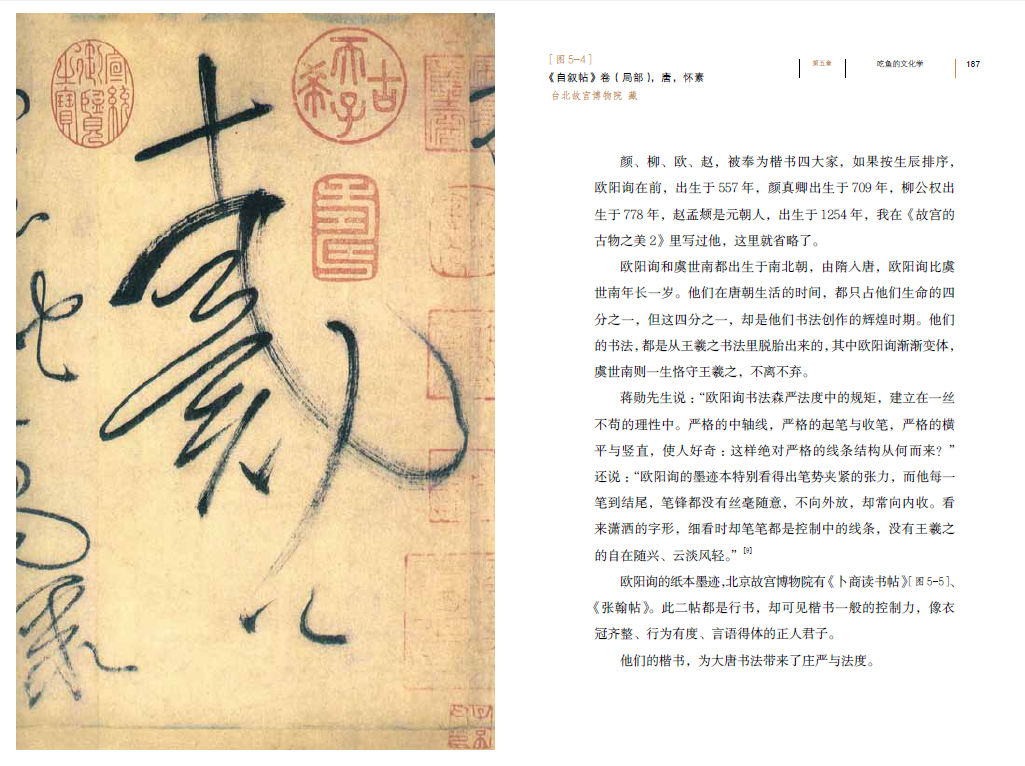 宣統
御覽
之寶
古
希
天子
[图 5-4]
《自叙帖》卷(局部)，唐，怀素
台北故宫博物院 藏
第五章
吃鱼的文化学
187
颜、柳、欧、赵，被奉为楷书四大家，如果按生辰排序，
欧阳询在前，出生于 557 年，颜真卿出生于 709 年，柳公权出
生于 778 年，赵孟𫖯是元朝人，出生于 1254 年，我在《故宫的
古物之美 2》里写过他，这里就省略了。
欧阳询和虞世南都出生于南北朝，由隋入唐，欧阳询比虞
世南年长一岁。他们在唐朝生活的时间，都只占他们生命的四
分之一，但这四分之一，却是他们书法创作的辉煌时期。他们
的书法，都是从王羲之书法里脱胎出来的，其中欧阳询渐渐变体，
虞世南则一生恪守王羲之，不离不弃。
蒋勋先生说：“欧阳询书法森严法度中的规矩，建立在一丝
不苟的理性中。严格的中轴线，严格的起笔与收笔，严格的横
平与竖直，使人好奇：这样绝对严格的线条结构从何而来？”
还说：“欧阳询的墨迹本特别看得出笔势夹紧的张力，而他每一
笔到结尾，笔锋都没有丝毫随意，不向外放，却常向内收。看
来潇洒的字形，细看时却笔笔都是控制中的线条，没有王羲之
的自在随兴、云淡风轻。”[9]
欧阳询的纸本墨迹，北京故宫博物院有《卜商读书帖》[图 5-5]、
《张翰帖》。此二帖都是行书，却可见楷书一般的控制力，像衣
冠齐整、行为有度、言语得体的正人君子。
他们的楷书，为大唐书法带来了庄严与法度。